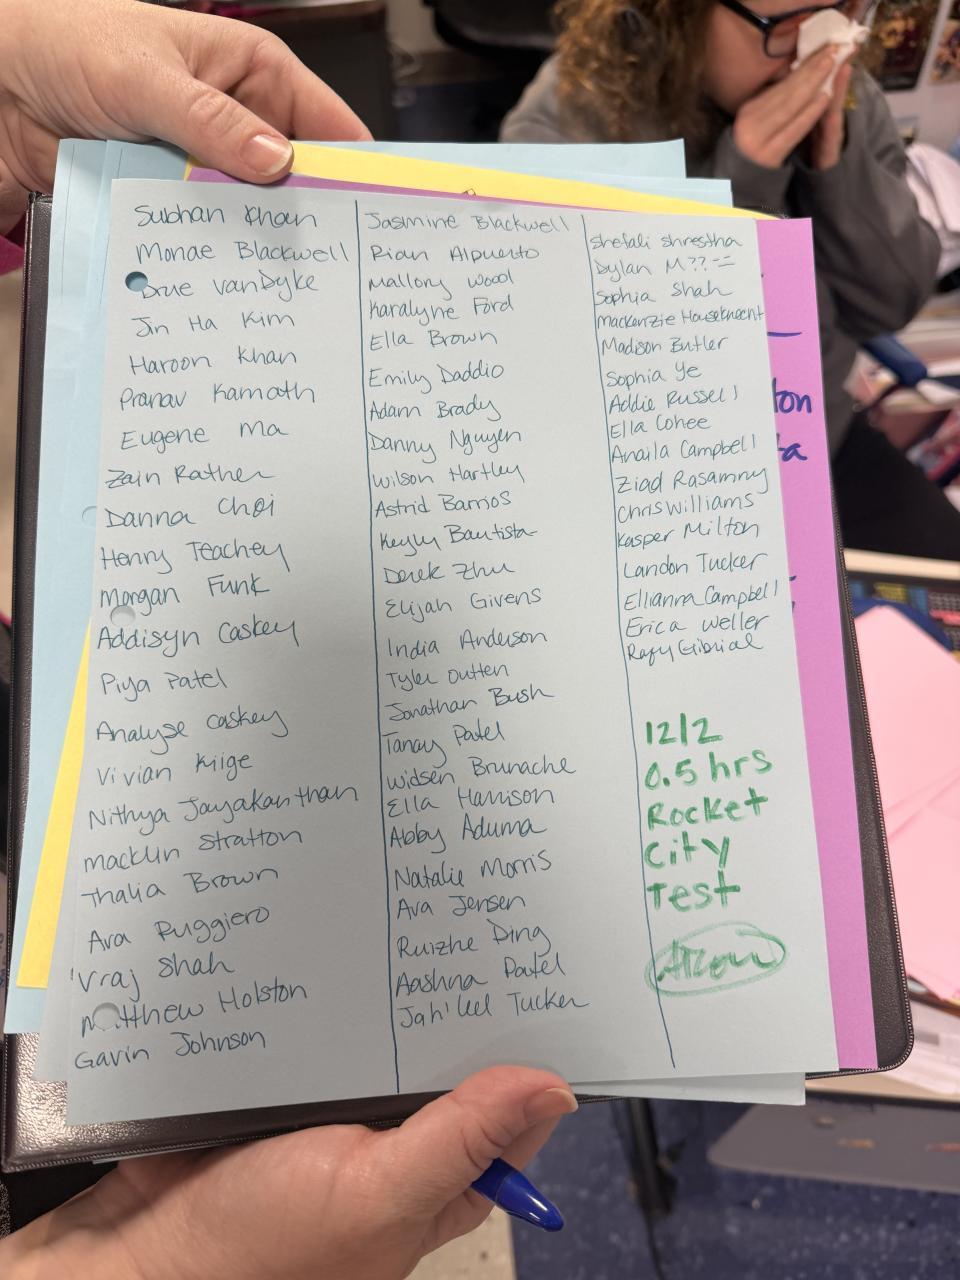 Subhan Khan
Monae Blackwell
Drue vanDyke
Jin Ha Kim
Haroon Khan
Pranav Kamath
Eugene Ma
Zain Rather
Danna Choi
Henry Teachey
Morgan Funk
Addisyn Caskey
Piya Patel
Analyse Caskey
Vivian Kiige
Nithya Jayakanthan
Macklin Stratton
Thalia Brown
Ava Ruggiero
Vraj Shah
Matthew Holston
Gavin Johnson
Jasmine Blackwell
Rian Alpuerto
Mallory Wood
Karalyne Ford
Ella Brown
Emily Daddio
Adam Brady
Danny Nguyen
Wilson Hartley
Astrid Barrios
Keyly Bautista
Derek Zhu
Elijah Givens
India Anderson
Tyler Outten
Jonathan Bush
Tanay Patel
Widsen Brunache
Ella Harrison
Abby Aduma
Natalie Morris
Ava Jensen
Ruizhe Ding
Aashna Patel
Jah'kel Tucker
Shefali Shrestha
Dylan M??--
Sophia Shah
Mackenzie Houseknecht
Madison Butler
Sophia Ye
Addie Russell
Ella Cohee
Anaila Campbell
Ziad Rasamny
Chris Williams
Kasper Milton
Landon Tucker
Elianna Campbell
Erica Weller
Rafy Gibrial
12/2
0.5 hrs
Rocket
City
Test
ton
ta